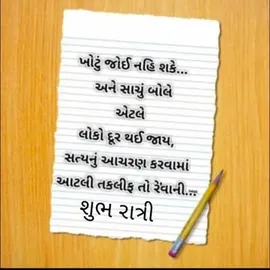 ખોટું જોઈ નહિ શકે...
અને સાચું બોલે
એટલે
લોકો દૂર થઈ જાય,
સત્યનું આચરણ કરવામાં
આટલી તકલીફ તો રેવાની...
શુભ રાત્રી